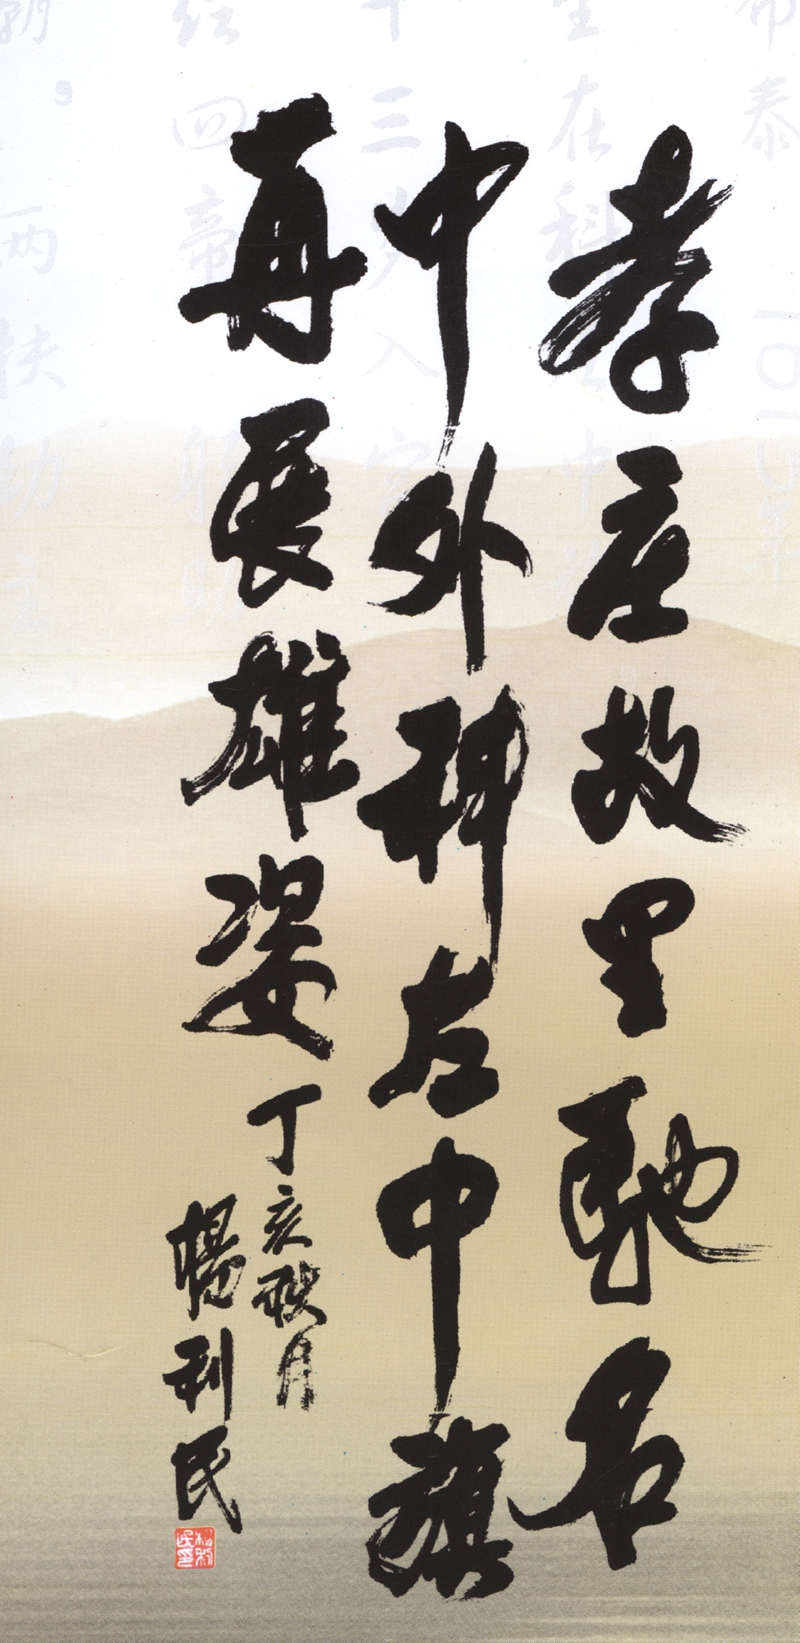 孝庄故里驰名
中外科左中旗
再展雄姿
丁亥秋月
杨利民